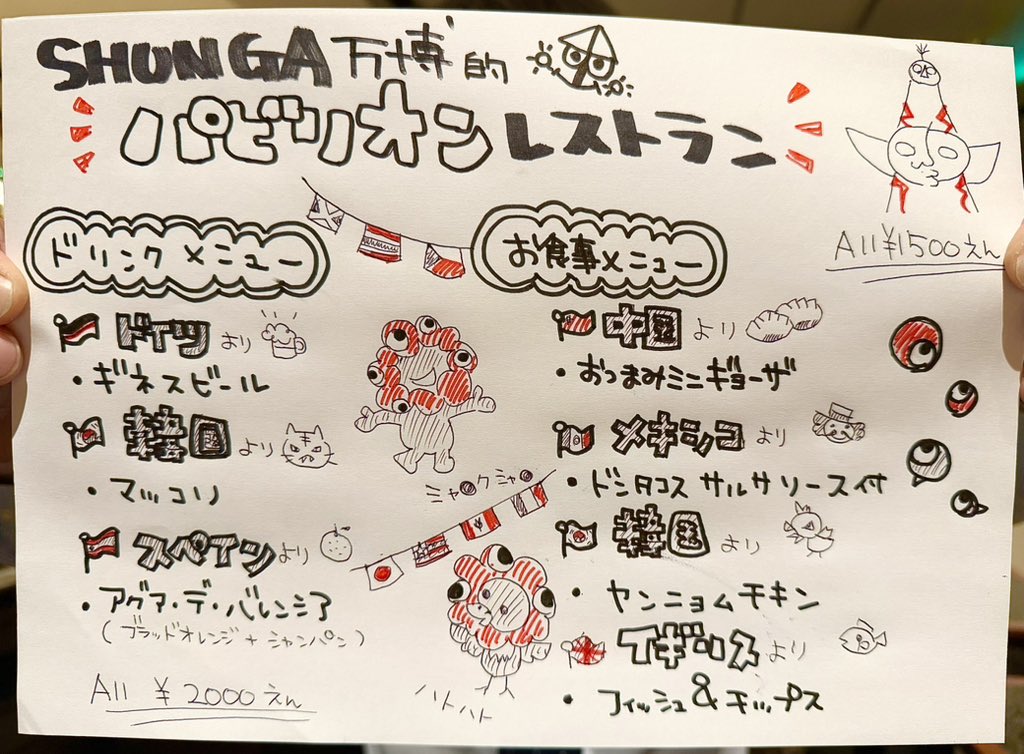 SHUNGA万博的
パビリオンレストラン
ドリンクメニュー
ドイツより
・ギネスビール
韓国より
・マッコリ
スペインより
・アグア・デ・バレンシア
(ブラッドオレンジ+シャンパン)
All ¥2000えん
お食事メニュー
All ¥1500えん
中国より
・おつまみミニギョーザ
メキシコより
・ドンタコス サルサソース付
韓国より
・ヤンニョムチキン
イギリスより
・フィッシュ&チップス
ミャクミャク
ハトハト